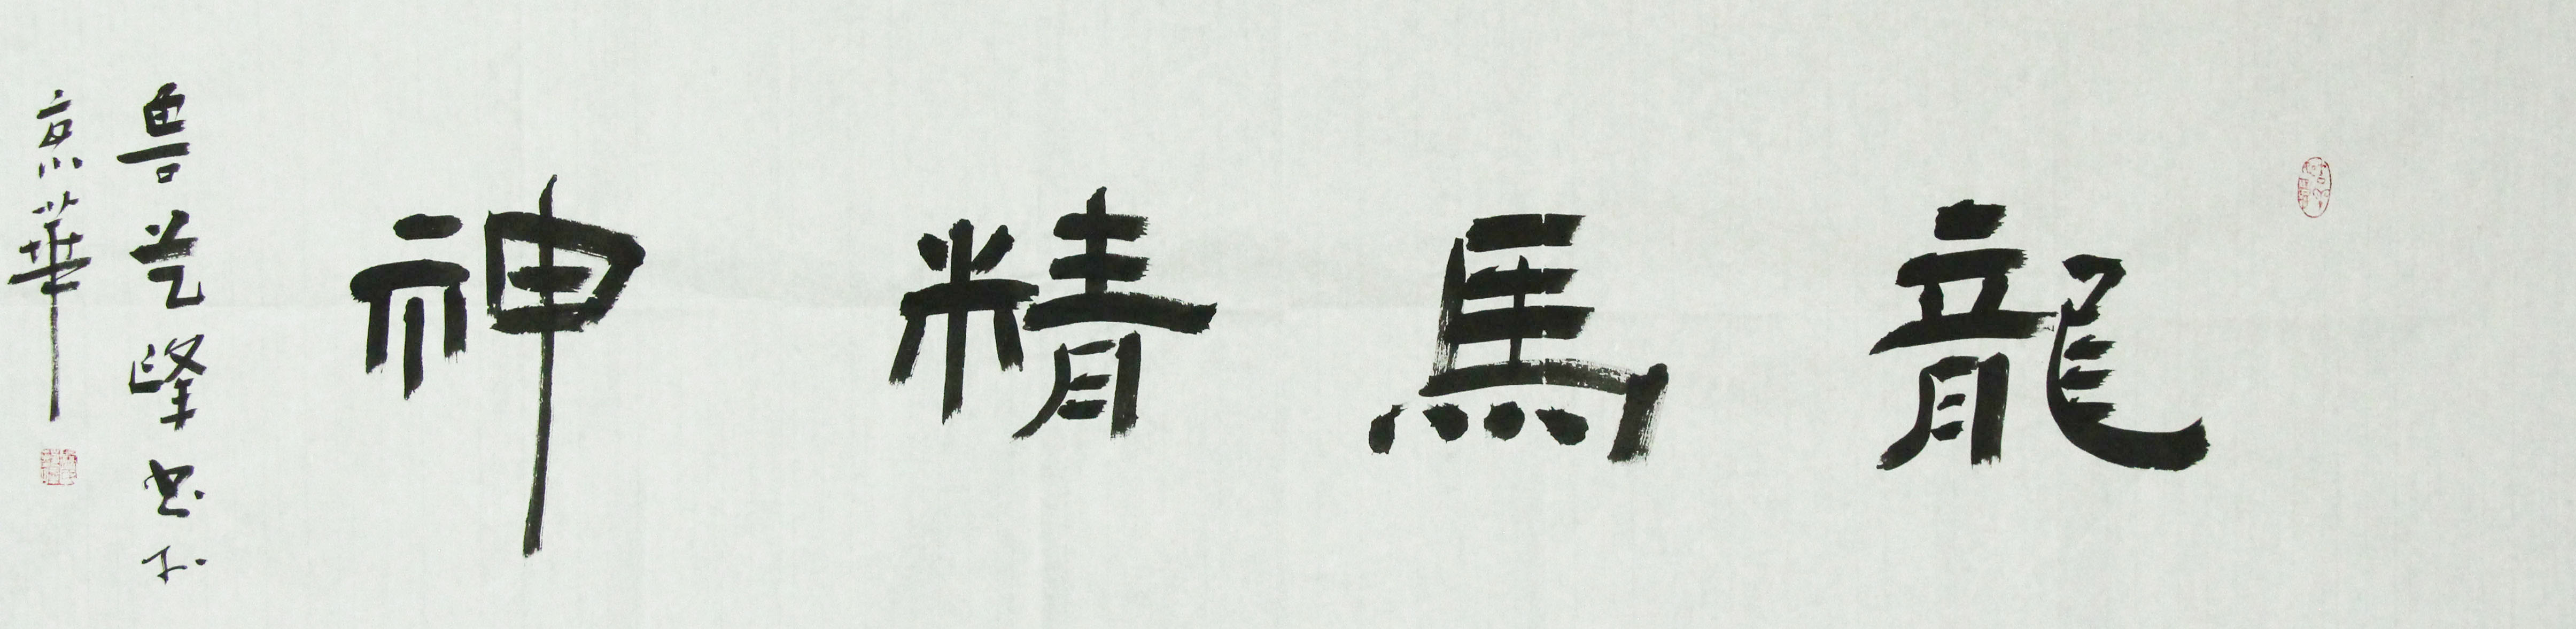 龍馬精神
魯艺峰书於
京華